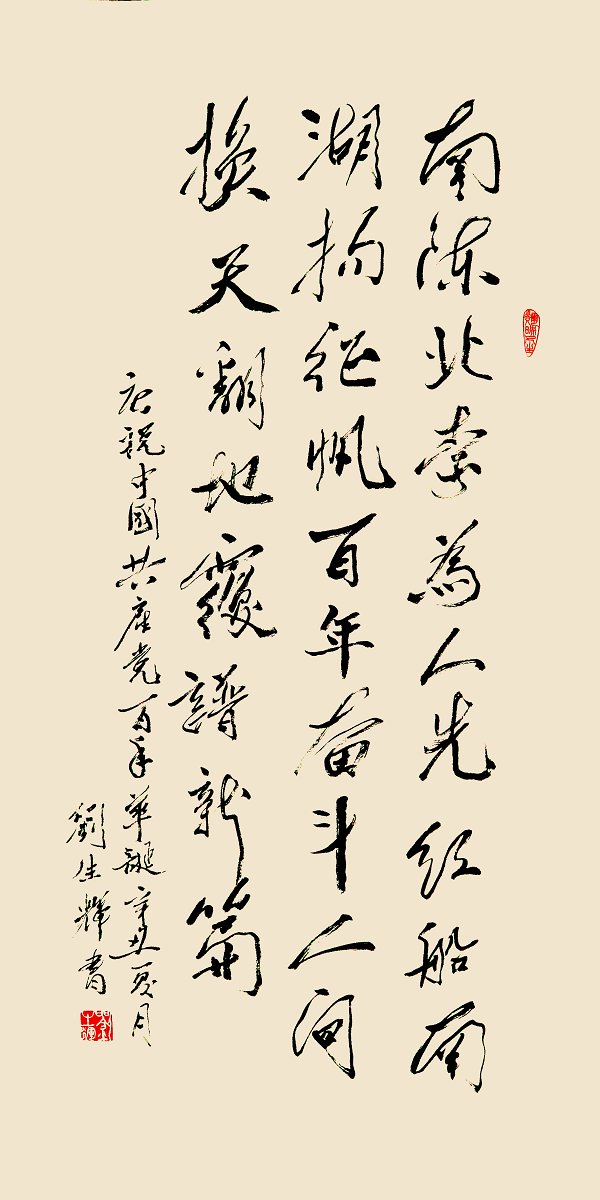 南陈北李為人先红船南
湖扬征帆百年奋斗人间
换天翻地覆譜新篇
庆祝中國共产党百年華誕辛丑夏月
劉生輝書